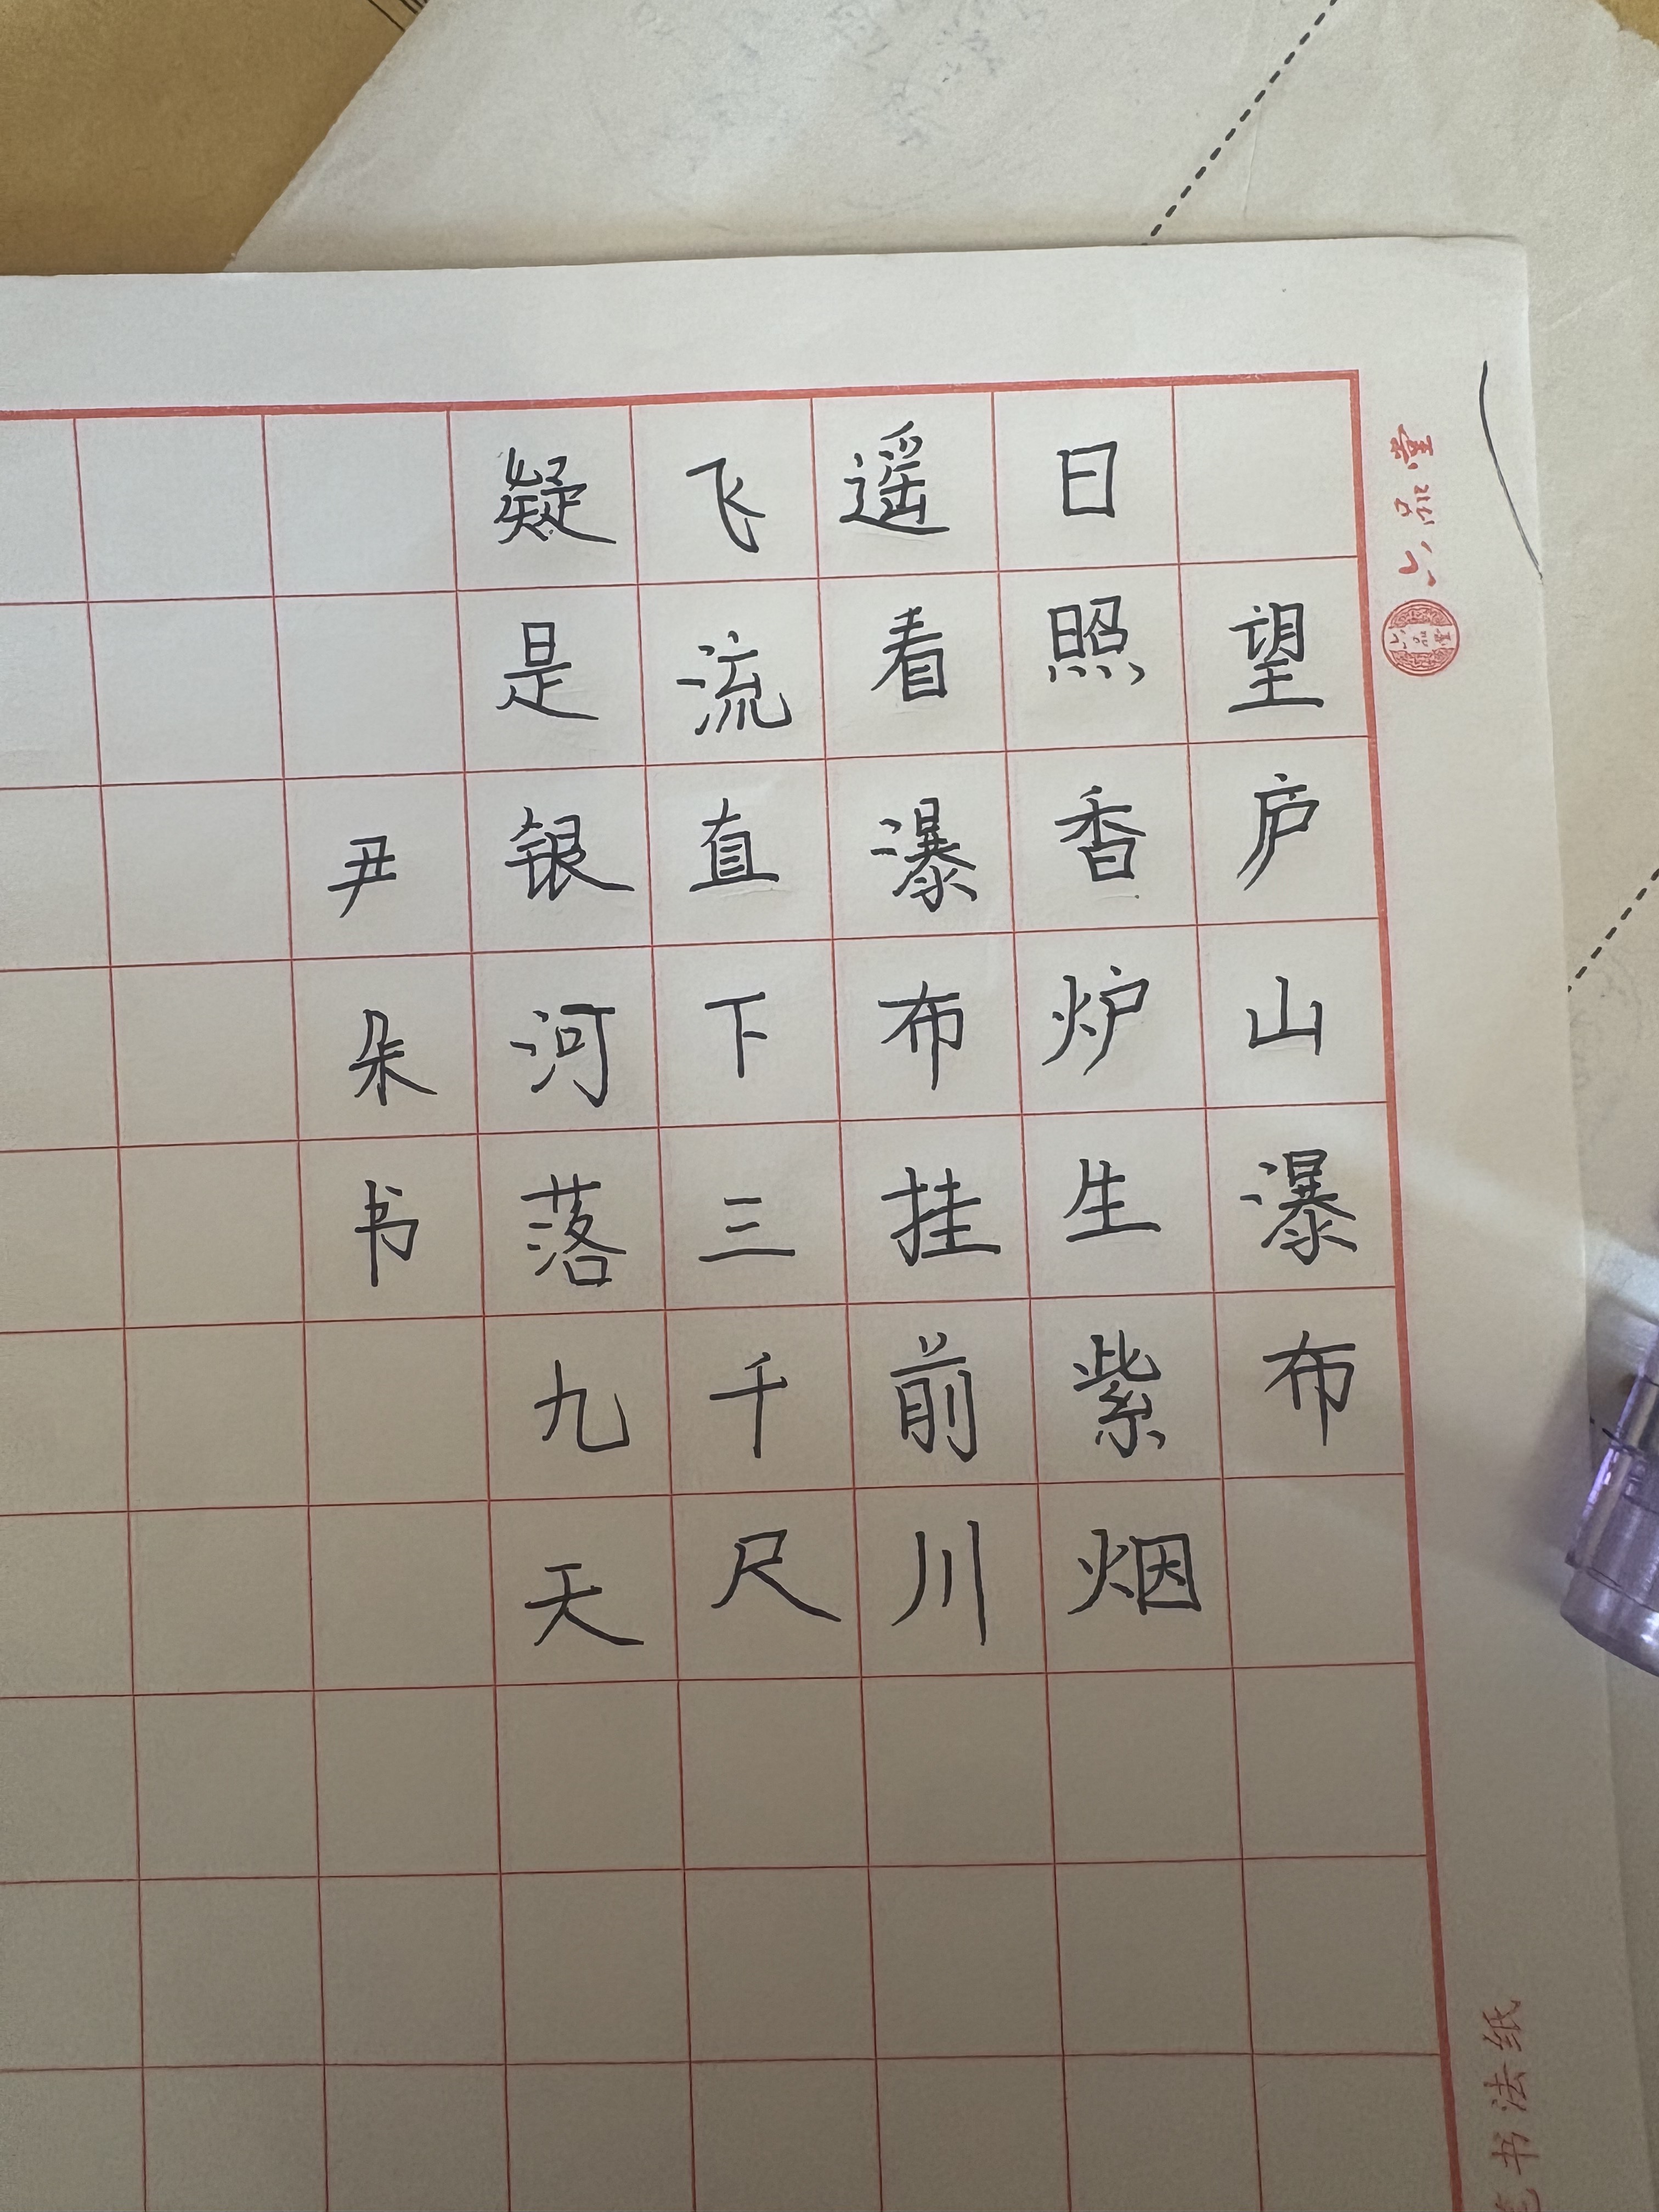 望庐山瀑布
日照香炉生紫烟
遥看瀑布挂前川
飞流直下三千尺
疑是银河落九天
尹朵书
六品堂
六品堂
笔书法纸